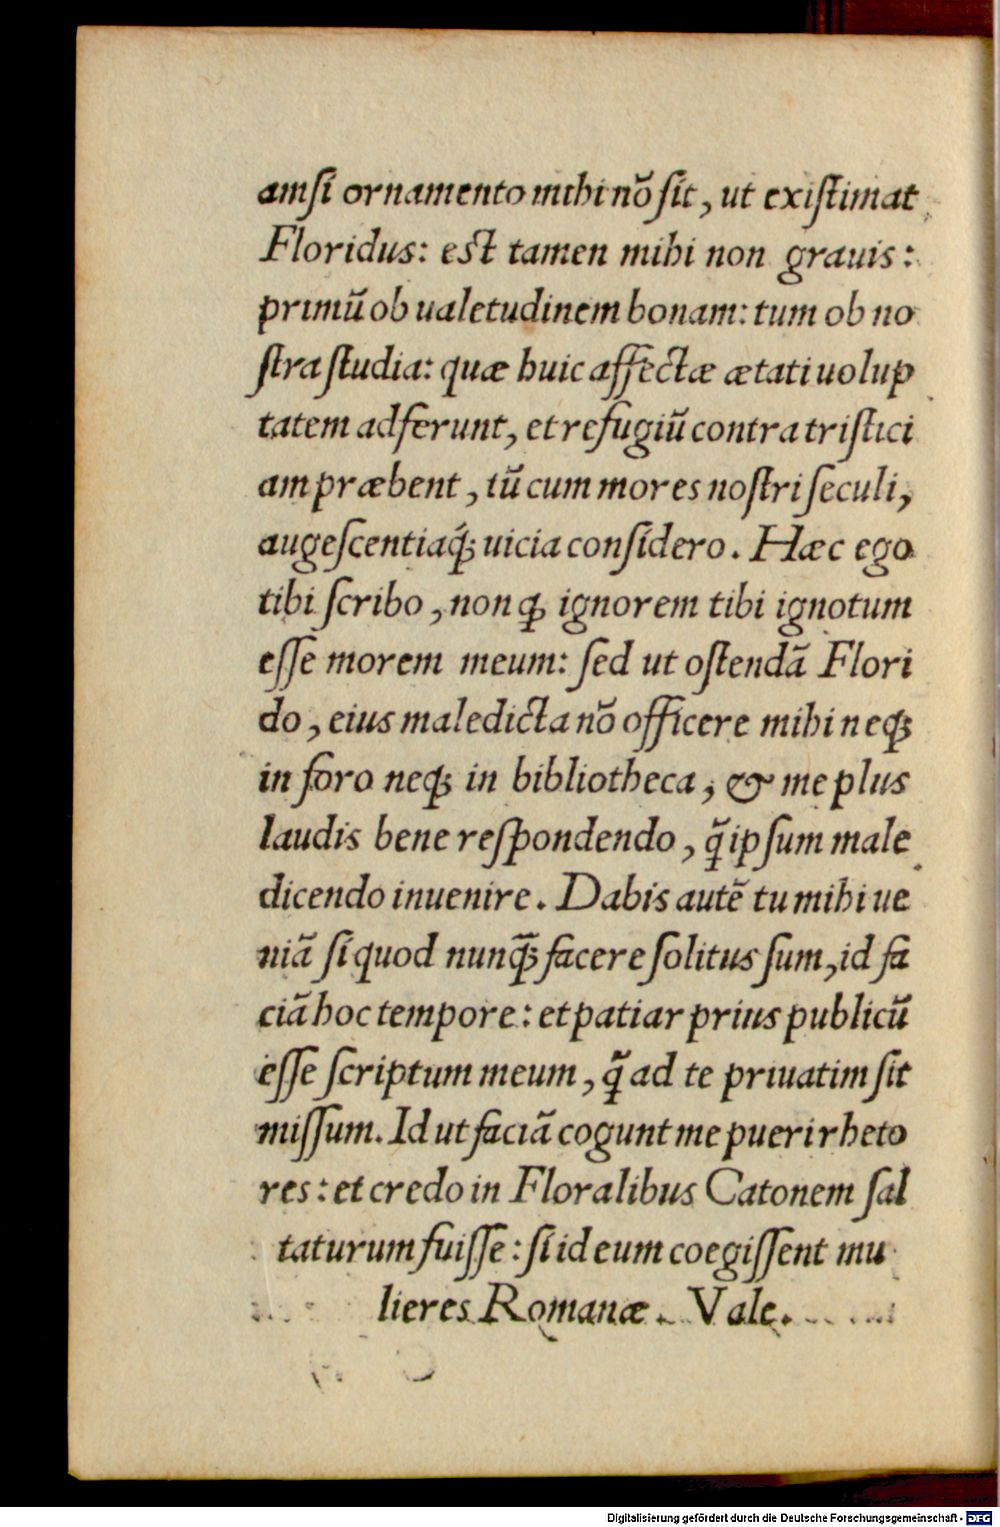 amsi ornamento mihi nõ sit, ut existimat
Floridus: est tamen mihi non grauis:
primũ ob ualetudinem bonam: tum ob no
stra studia: quæ huic affectæ ætati uolup
tatem adferunt, et refugiũ contra tristici
am præbent, tũ cum mores nostri seculi,
augescentiaq́; uicia considero. Hæc ego
tibi scribo, non ꝙ ignorem tibi ignotum
esse morem meum: sed ut ostendã Flori
do, eius maledicta nõ officere mihi neq;
in foro neq; in bibliotheca, & me plus
laudis bene respondendo, q̃ ipsum male
dicendo inuenire. Dabis autẽ tu mihi ue
niã si quod nunq̃; facere solitus sum, id fa
ciã hoc tempore: et patiar prius publicũ
esse scriptum meum, q̃ ad te priuatim sit
missum. Id ut faciã cogunt me pueri rheto
res: et credo in Floralibus Catonem sal
taturum fuisse: si id eum coegissent mu
lieres Romanæ. Vale.
Digitalisierung gefördert durch die Deutsche Forschungsgemeinschaft - DFG